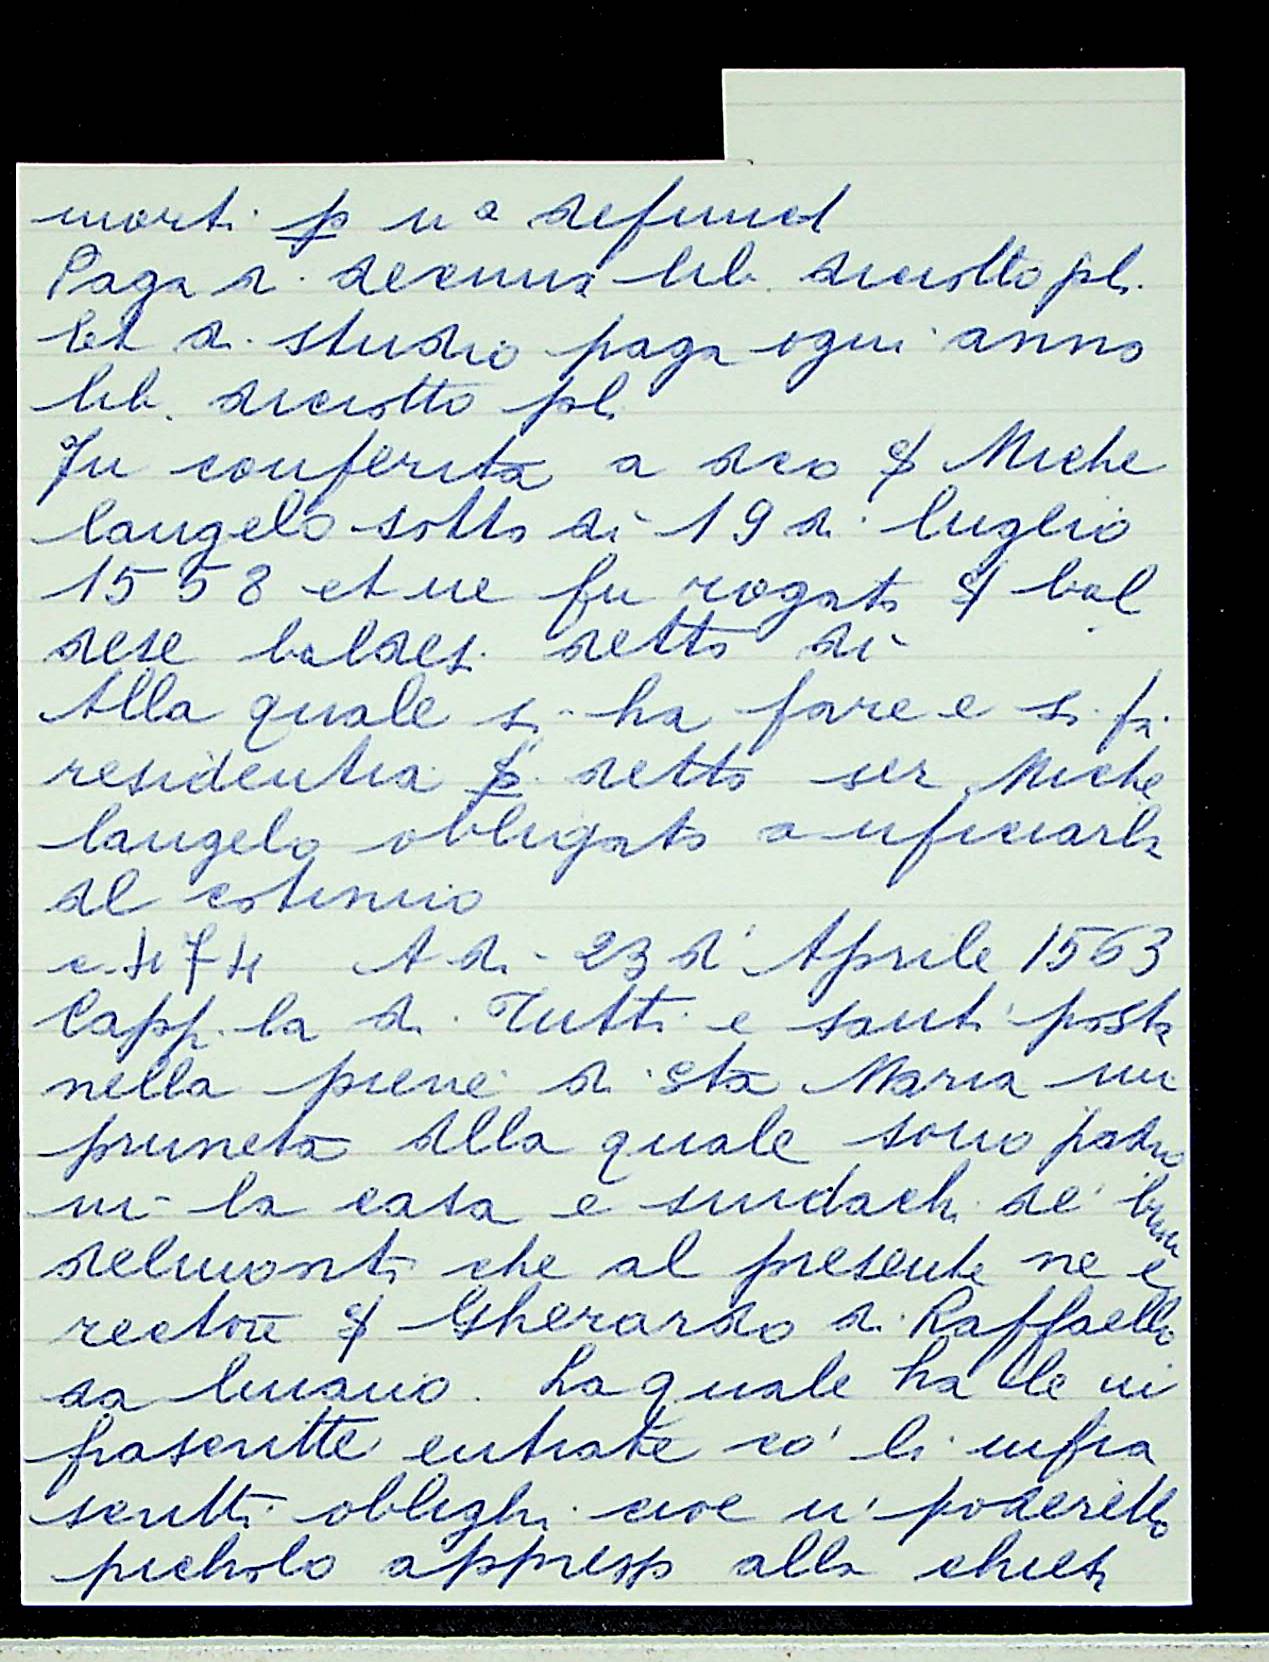 morti p una defunct
Paga di decima lib. diciotto pli.
Et di studio paga ogni anno
lib. diciotto pli
Fu conferita a dco S Miche
langelo sotto dì 19 di luglio
1558 et ne fu rogato S bal
dese baldesi detto dì
Alla quale si ha fare e si fa
residentia p detto ser Miche
langelo obligato a uficiarla
al cotinuo
c. 474 A di 23 d' Aprile 1563
Capp.la di Tutti e santi posta
nella pieve di Sta Maria im
pruneta Alla quale sono padro
ni la casa e sindachi de' buon
delmonti che al presente ne è
rectore S Gherardo di Raffaello
da
La quale ha le in
frascritte entrate co' li infra
scritti oblighi cioe u' poderetto
picholo appresso alla chiesa